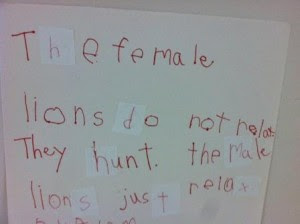 The female
lions do not relax
They hunt. the Male
lions just relax.